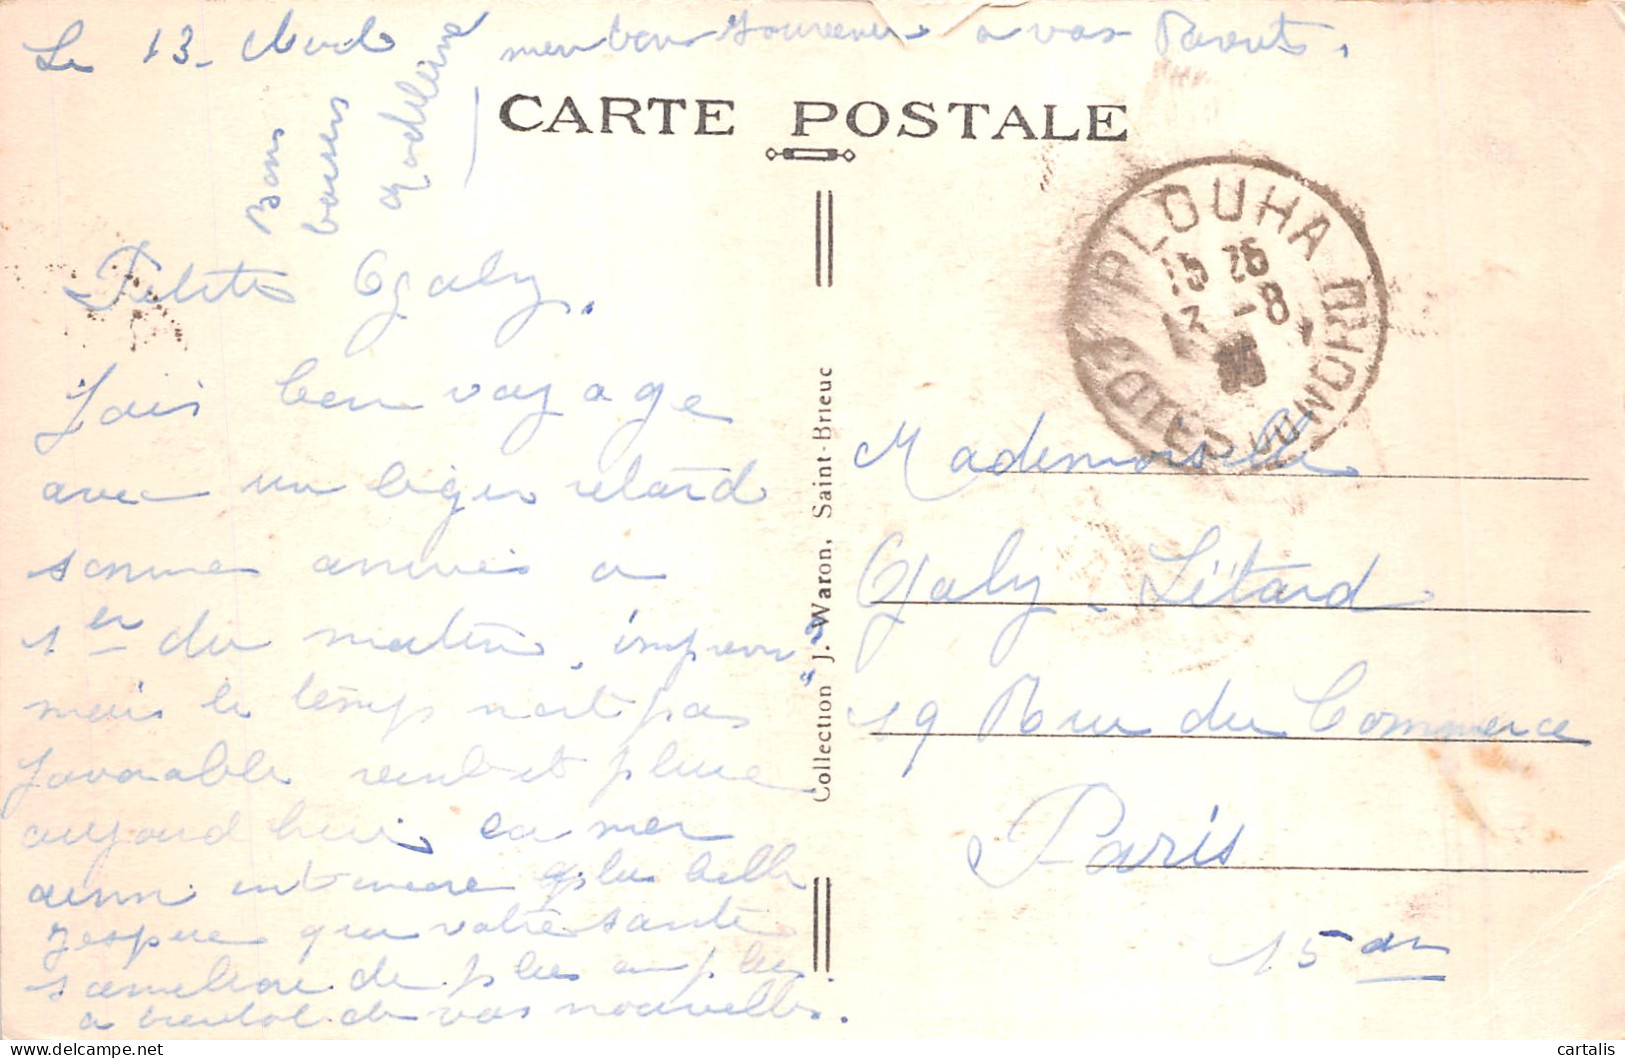 Le 13.
mon bon Souvenir a vos Parents.
Bons
baisers
Madeleine
CARTE POSTALE
PLOUHA
15 25
13 -8
COTES DU NORD
Petite Galy.
fais bon voyage
avec un léger retard
somme arrivés a
1er du matin, imprévu
mais le temps n'est pas
favorable vent et pluie
aujourd'hui
encore plus belle
J'espère que votre santé
s'améliore de plus en plus
a bientot de vos nouvelles.
Collection J. Waron, Saint-Brieuc
Mademoiselle
Galy-Létard
19 Rue du Commerce
Paris
15
cartalis